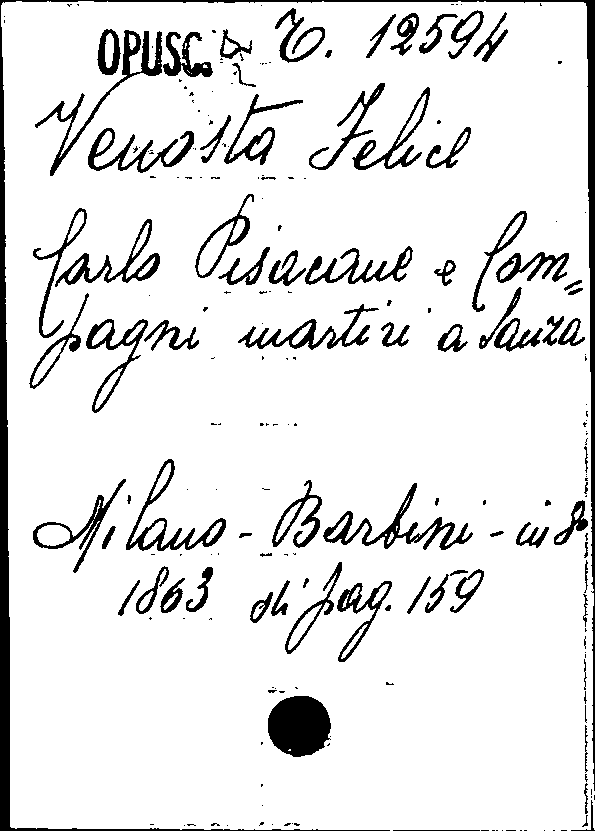 OPUSC. A T. 12594
Venosta Felice
Carlo Pisacane e Com=
pagni martiri a Sanza
Milano - Barbini - in 8º
1863 di pag. 159